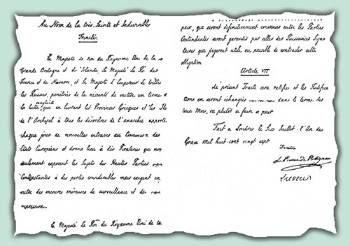 Au Nom de la très Sainte et Indivisible
Trinité
Sa Majesté le Roi du Royaume Uni de la
Grande Bretagne et d'Irlande, Sa Majesté le Roi de
France et de Navarre, et Sa Majesté l'Empereur de toutes
les Russies, pénétrés de la nécessité de mettre un terme à
la lutte qui en livrant les Provinces Grecques et les Iles
de l'Archipel à tous les désordres de l'anarchie apporte
chaque jour de nouvelles entraves au Commerce des
États Européens et donne lieu à des Pirateries qui non
seulement exposent les Sujets des Hautes Parties
Contractantes à des pertes considérables mais exigent en
outre des mesures onéreuses de surveillance et de
Sa Majesté le Roi du Royaume Uni de la
que, qui seront définitivement convenus entre les Parties
Contractantes seront garantis par celles des Puissances Signa-
taires qui jugeront utile, ou possible de contracter cette
obligation
Article VII
Le présent Traité sera ratifié et les Ratifica-
tions en seront échangées dans le terme de
deux Mois, ou plutôt si faire se peut
Fait à Londres le Six Juillet l'an de
Grace mil huit cent vingt sept